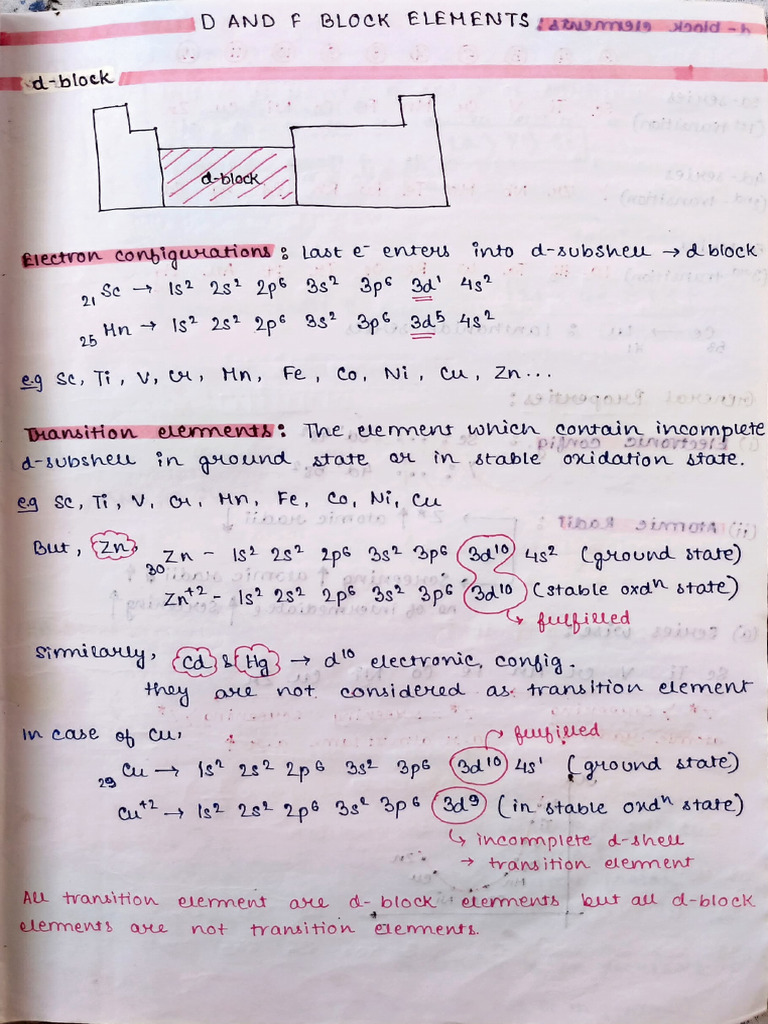 D AND F BLOCK ELEMENTS
d-block
d-block
Electron configurations : Last e⁻ enters into d-subshell → d block
₂₁Sc → 1s² 2s² 2p⁶ 3s² 3p⁶ 3d¹ 4s²
₂₅Mn → 1s² 2s² 2p⁶ 3s² 3p⁶ 3d⁵ 4s²
e.g Sc, Ti, V, Cr, Mn, Fe, Co, Ni, Cu, Zn...
Transition elements : The element which contain incomplete
d-subshell in ground state or in stable oxidation state.
e.g Sc, Ti, V, Cr, Mn, Fe, Co, Ni, Cu
But, Zn, ₃₀Zn - 1s² 2s² 2p⁶ 3s² 3p⁶ 3d¹⁰ 4s² (ground state)
Zn⁺² - 1s² 2s² 2p⁶ 3s² 3p⁶ 3d¹⁰ (stable oxdⁿ state)
↳ fulfilled
Similarly, Cd & Hg → d¹⁰ electronic config.
they are not considered as transition element
In case of Cu, → fulfilled
₂₉Cu → 1s² 2s² 2p⁶ 3s² 3p⁶ 3d¹⁰ 4s¹ (ground state)
Cu⁺² → 1s² 2s² 2p⁶ 3s² 3p⁶ 3d⁹ (in stable oxdⁿ state)
↳ incomplete d-shell
→ transition element
All transition element are d-block elements but all d-block
elements are not transition elements.